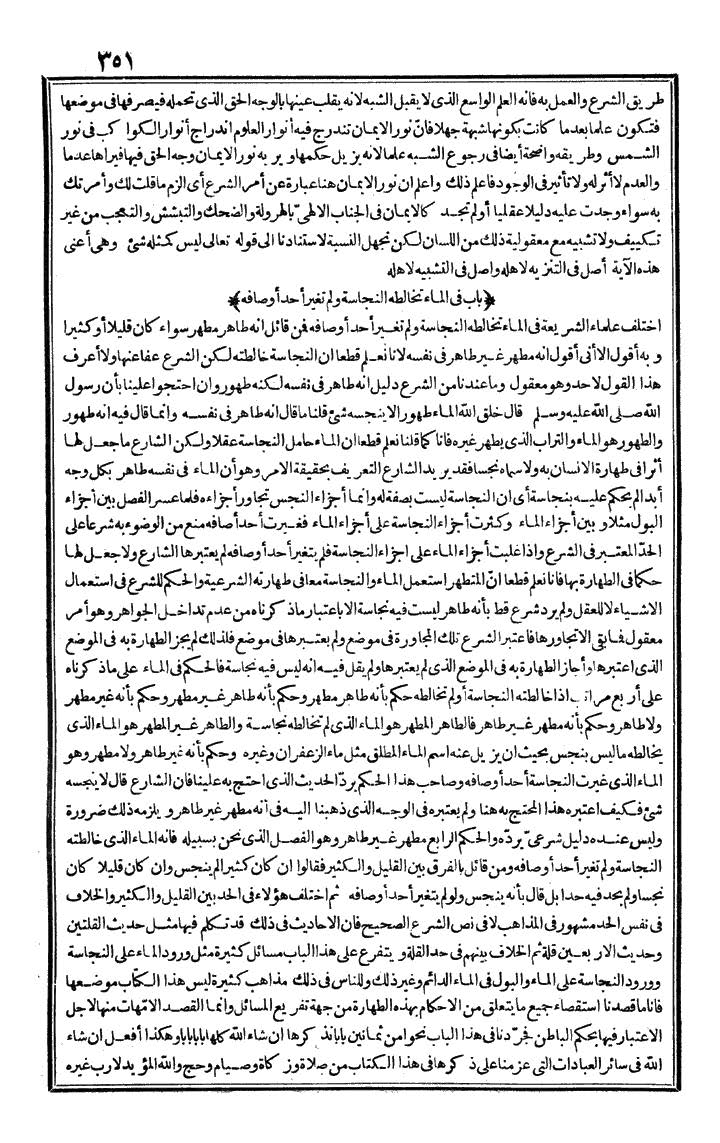 ٣٥١
طريق الشرع والعمل به فانه العلم الواسع الذى لا يقبل الشبه لانه يقلب عينها بالوجه الحق الذى تحمله فيصرفها فى موضعها
فتكون علما بعدما كانت بكونها شبهة جهلا فانّ نور الايمان تندرج فيه أنوار العلوم اندراج أنوار الكواكب فى نور
الشمس وطريقه واضحة أيضا فى رجوع الشبه علما لانه يزيل حكمها ويريه نور الايمان وجه الحق فيها فيراها عدما
والعدم لا أثر له ولا تأثير فى الوجود فاعلم ذلك واعلم ان نور الايمان هنا عبارة عن أمر الشرع أى الزم ما قلت لك وأمرتك
به سواء وجدت عليه دليلا عقليا أولم تجد كالايمان فى الجناب الالهىّ بالهرولة والضحك والتبشش والتعجب من غير
تكييف ولا تشبيه مع معقولية ذلك من اللسان لكن نجهل النسبة لاستنادنا الى قوله تعالى ليس كمثله شئ وهى أعنى
هذه الآية أصل فى التنزيه لاهله واصل فى التشبيه لاهله
﴿باب فى الماء تخالطه النجاسة ولم تغير أحد أوصافه﴾
اختلف علماء الشريعة فى الماء تخالطه النجاسة ولم تغير أحد أوصافه فمن قائل انه طاهر مطهر سواء كان قليلا أو كثيرا
وبه أقول الا أنى أقول انه مطهر غير طاهر فى نفسه لانا نعلم قطعا ان النجاسة خالطته لكن الشرع عفا عنها ولا أعرف
هذا القول لاحد وهو معقول وما عندنا من الشرع دليل انه طاهر فى نفسه لكنه طهور وان احتجوا علينا بأن رسول
الله صلى الله عليه وسلم قال خلق الله الماء طهورا لا ينجسه شئ قلنا ما قال انه طاهر فى نفسه وانما قال فيه انه طهور
والطهور هو الماء والتراب الذى يطهر غيره فانا كما قلنا نعلم قطعا ان الماء حامل النجاسة عقلا ولكن الشارع ما جعل لها
أثرا فى طهارة الانسان به ولا سماه نجسا فقد يريد الشارع التعريف بحقيقة الامر وهو أن الماء فى نفسه طاهر بكل وجه
أبدا لم يحكم عليه بنجاسة أى ان النجاسة ليست بصفة له وانما أجزاء النجس تجاور أجزاءه فلما عسر الفصل بين أجزاء
البول مثلا وبين أجزاء الماء وكثرت أجزاء النجاسة على أجزاء الماء فغيرت أحد أوصافه منع من الوضوء به شرعا على
الحدّ المعتبر فى الشرع واذا غلبت أجزاء الماء على اجزاء النجاسة فلم يتغير أحد أوصافه لم يعتبرها الشارع ولا جعل لها
حكما فى الطهارة بها فانا نعلم قطعا انّ المتطهر استعمل الماء والنجاسة معا فى طهارته الشرعية والحكم للشرع فى استعمال
الاشياء لا للعقل ولم يرد شرع قط بأنه طاهر ليست فيه نجاسة الا باعتبار ما ذكرناه من عدم تداخل الجواهر وهو أمر
معقول فما بقى الا تجاورها فاعتبر الشرع تلك المجاورة فى موضع ولم يعتبرها فى موضع فلذلك لم يجز الطهارة به فى الموضع
الذى اعتبرها وأجاز الطهارة به فى الموضع الذى لم يعتبرها ولم يقل فيه انه ليس فيه نجاسة فالحكم فى الماء على ما ذكرناه
على أربع مراتب اذا خالطته النجاسة أولم تخالطه حكم بأنه طاهر مطهر وحكم بأنه طاهر غير مطهر وحكم بأنه غير مطهر
ولا طاهر وحكم بأنه مطهر غير طاهر فالطاهر المطهر هو الماء الذى لم تخالطه نجاسة والطاهر غير المطهر هو الماء الذى
يخالطه ما ليس بنجس بحيث ان يزيل عنه اسم الماء المطلق مثل ماء الزعفران وغيره وحكم بأنه غير طاهر ولا مطهر وهو
الماء الذى غيرت النجاسة أحد أوصافه وصاحب هذا الحكم يردّ الحديث الذى احتج به علينا فان الشارع قال لا ينجسه
شئ فكيف اعتبره هذا المحتج به هنا ولم يعتبره فى الوجه الذى ذهبنا اليه فى أنه مطهر غير طاهر ويلزمه ذلك ضرورة
وليس عنده دليل شرعىّ يردّه والحكم الرابع مطهر غير طاهر وهو الفصل الذى نحن بسبيله فانه الماء الذى خالطته
النجاسة ولم تغير أحد أوصافه ومن قائل بالفرق بين القليل والكثير فقالوا ان كان كثيرا لم ينجس وان كان قليلا كان
نجسا ولم يحد فيه حدا بل قال بأنه ينجس ولو لم يتغير أحد أوصافه ثم اختلف هؤلاء فى الحد بين القليل والكثير والخلاف
فى نفس الحد مشهور فى المذاهب لا فى نص الشرع الصحيح فان الاحاديث فى ذلك قد تكلم فيها مثل حديث القلتين
وحديث الاربعين قلة ثم الخلاف بينهم فى حد القلة ويتفرع على هذا الباب مسائل كثيرة مثل ورود الماء على النجاسة
وورود النجاسة على الماء والبول فى الماء الدائم وغير ذلك وللناس فى ذلك مذاهب كثيرة ليس هذا الكتاب موضعها
فانا ما قصدنا استقصاء جميع ما يتعلق من الاحكام بهذه الطهارة من جهة تفريع المسائل وانما القصد الامّهات منها لاجل
الاعتبار فيها بحكم الباطن فجرّدنا فى هذا الباب نحوا من ثمانين بابا نذكرها ان شاء الله كلها بابا بابا وهكذا أفعل ان شاء
الله فى سائر العبادات التى عزمنا على ذكرها فى هذا الكتاب من صلاة وزكاة وصيام وحج والله المؤيد لا رب غيره